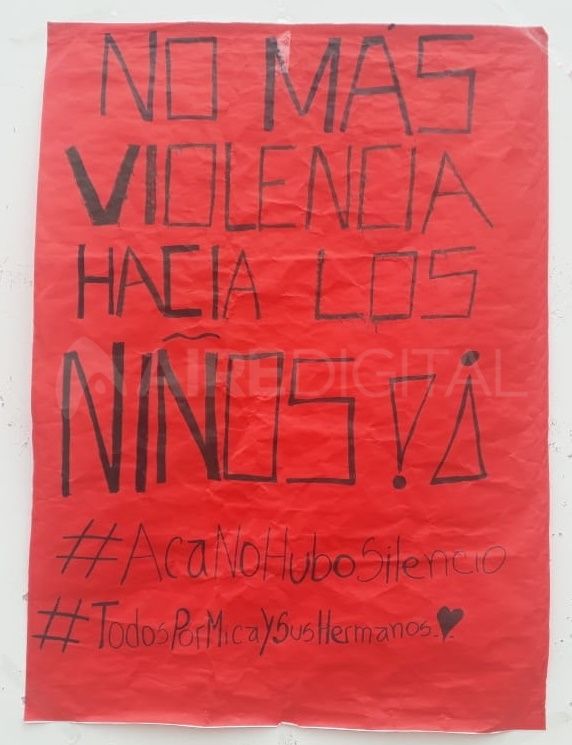 NO MÁS
VIOLENCIA
HACIA LOS
NIÑOS!¡
AIREDIGITAL
#AcaNoHuboSilencio
#TodosPorMicaySusHermanos.♥.